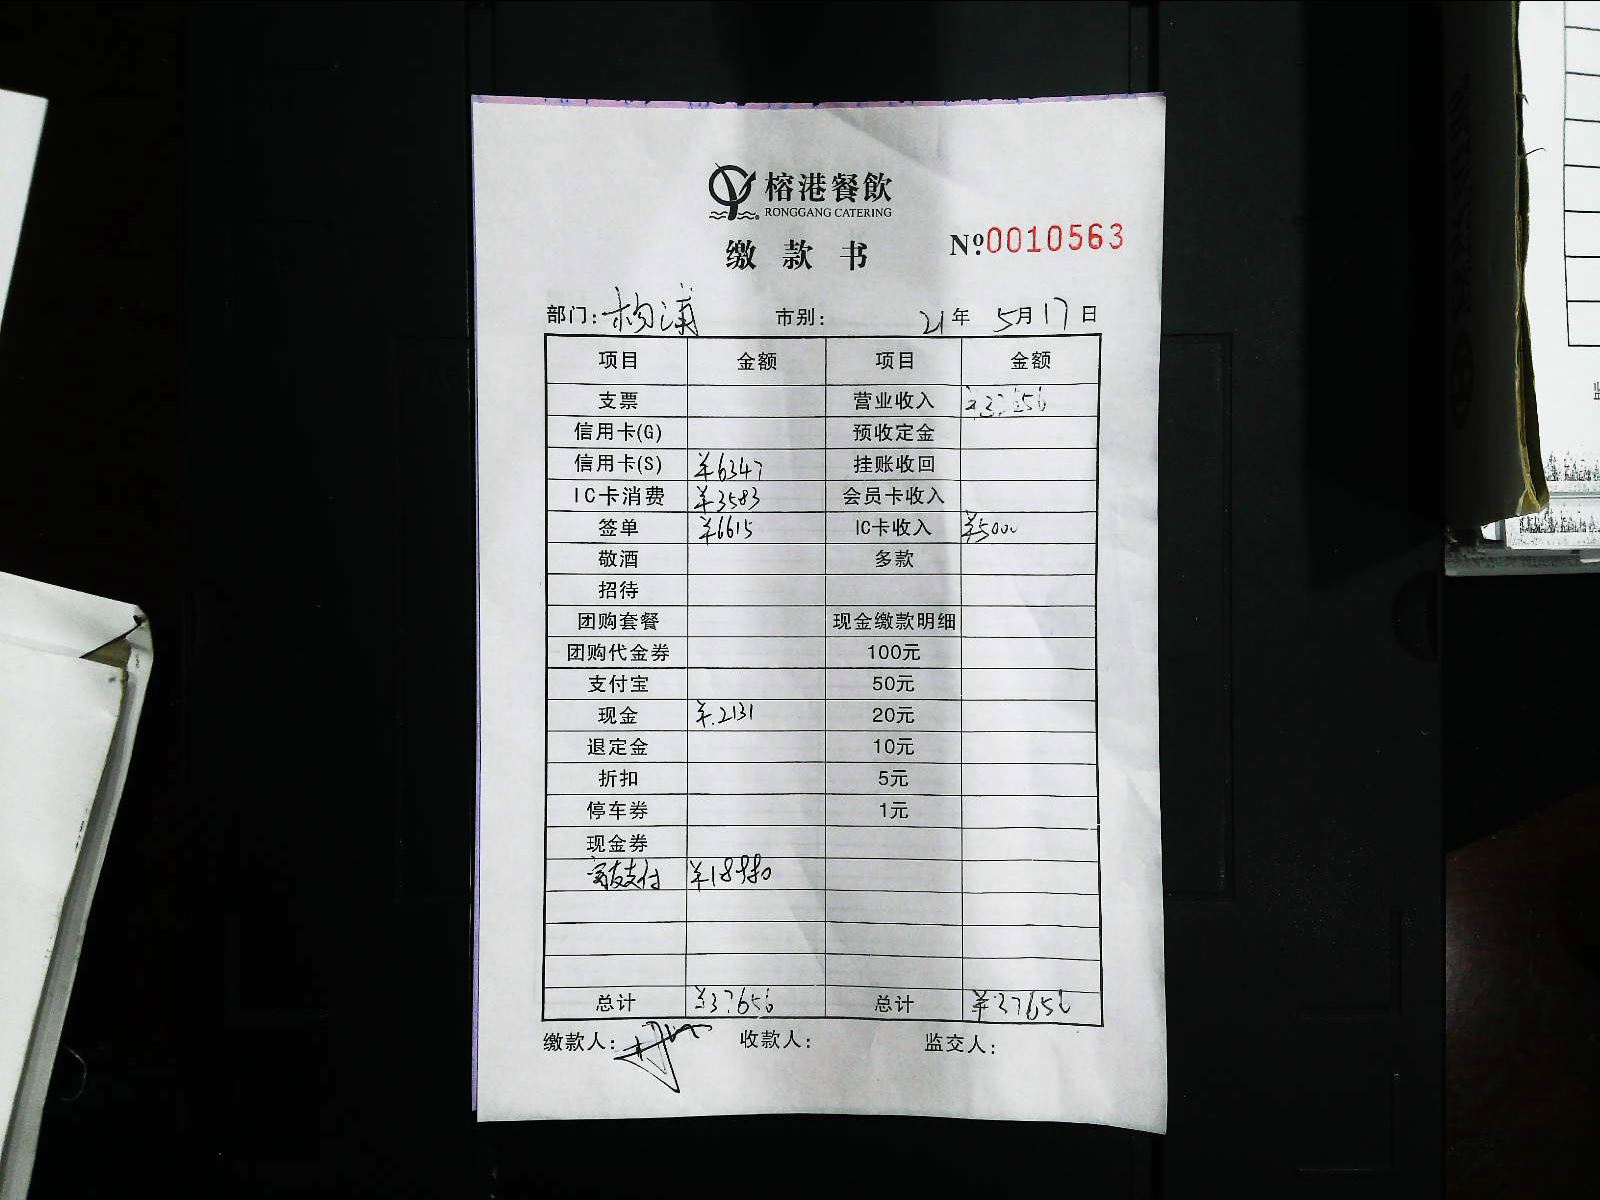 榕港餐飲
RONGGANG CATERING
缴款书
№0010563
部门: 市别: 21年 5月17日
项目 金额 项目 金额
支票 营业收入 ¥32656
信用卡(G) 预收定金
信用卡(S) ¥6347 挂账收回
IC卡消费 ¥3583 会员卡收入
签单 ¥6615 IC卡收入 ¥5000
敬酒 多款
招待
团购套餐 现金缴款明细
团购代金券 100元
支付宝 50元
现金 ¥.2131 20元
退定金 10元
折扣 5元
停车券 1元
现金券
支付 ¥18980
总计 ¥37656 总计 ¥37656
缴款人: 收款人: 监交人: